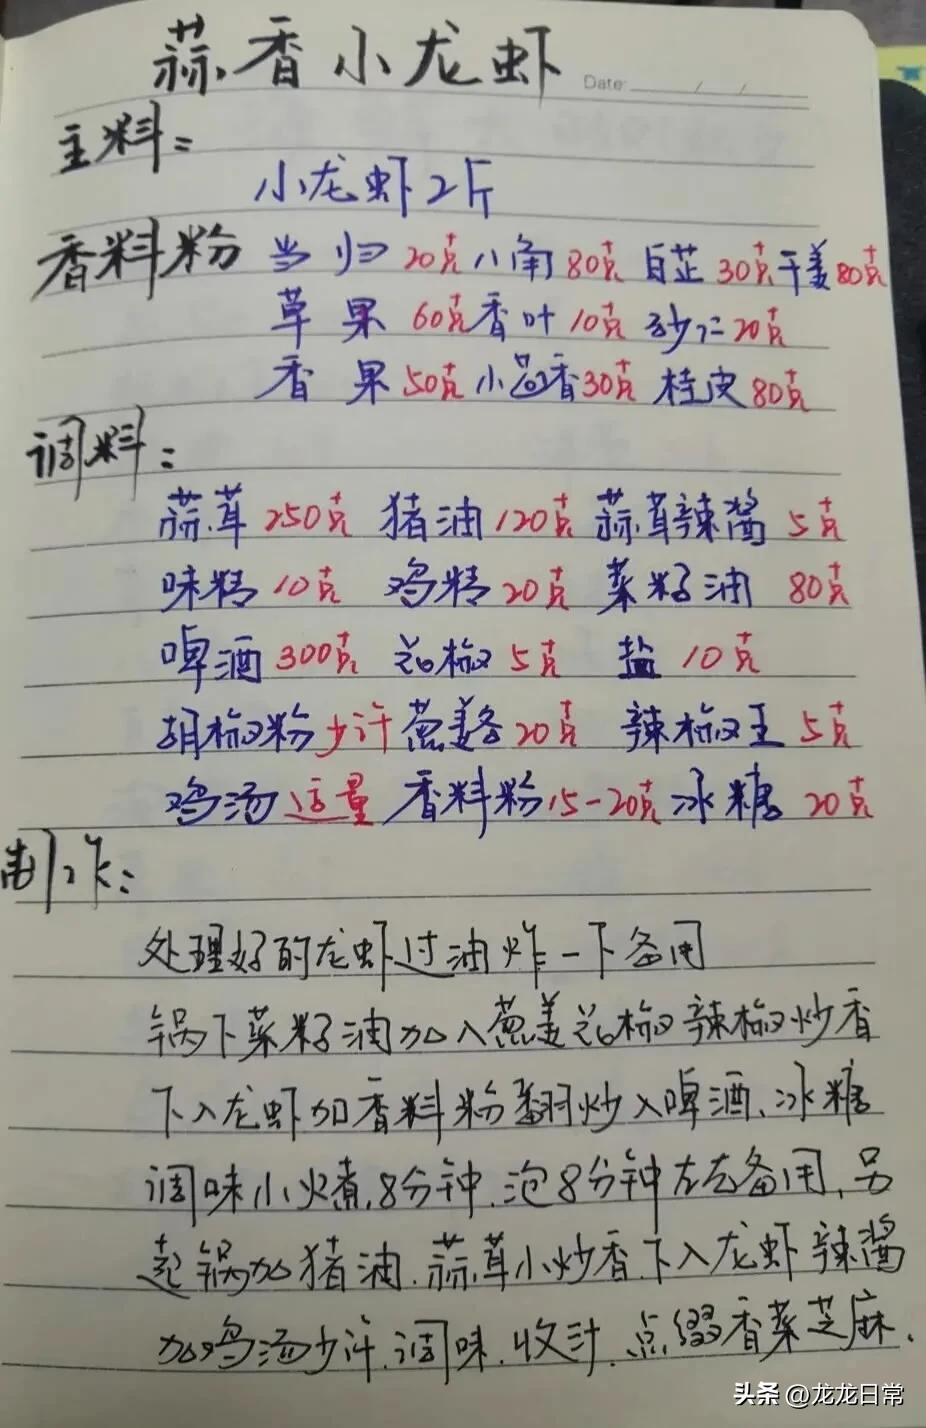 蒜香小龙虾
Date: / /
主料:
小龙虾2斤
香料粉 当归20克 八角80克 白芷30克 干姜80克
草果60克 香叶10克 砂仁20克
香果50克 小茴香30克 桂皮80克
调料:
蒜茸250克 猪油120克 蒜茸辣酱5克
味精10克 鸡精20克 菜籽油80克
啤酒300克 花椒5克 盐10克
胡椒粉少许 葱姜各20克 辣椒王5克
鸡汤适量 香料粉15-20克 冰糖20克
制作:
处理好的龙虾过油炸一下备用
锅下菜籽油加入葱姜花椒辣椒炒香
下入龙虾加香料粉翻炒入啤酒、冰糖
调味小火煮8分钟.泡8分钟左右备用,另
起锅加猪油.蒜茸小炒香.下入龙虾辣酱
加鸡汤少许.调味.收汁.点缀香菜芝麻.
头条 @龙龙日常